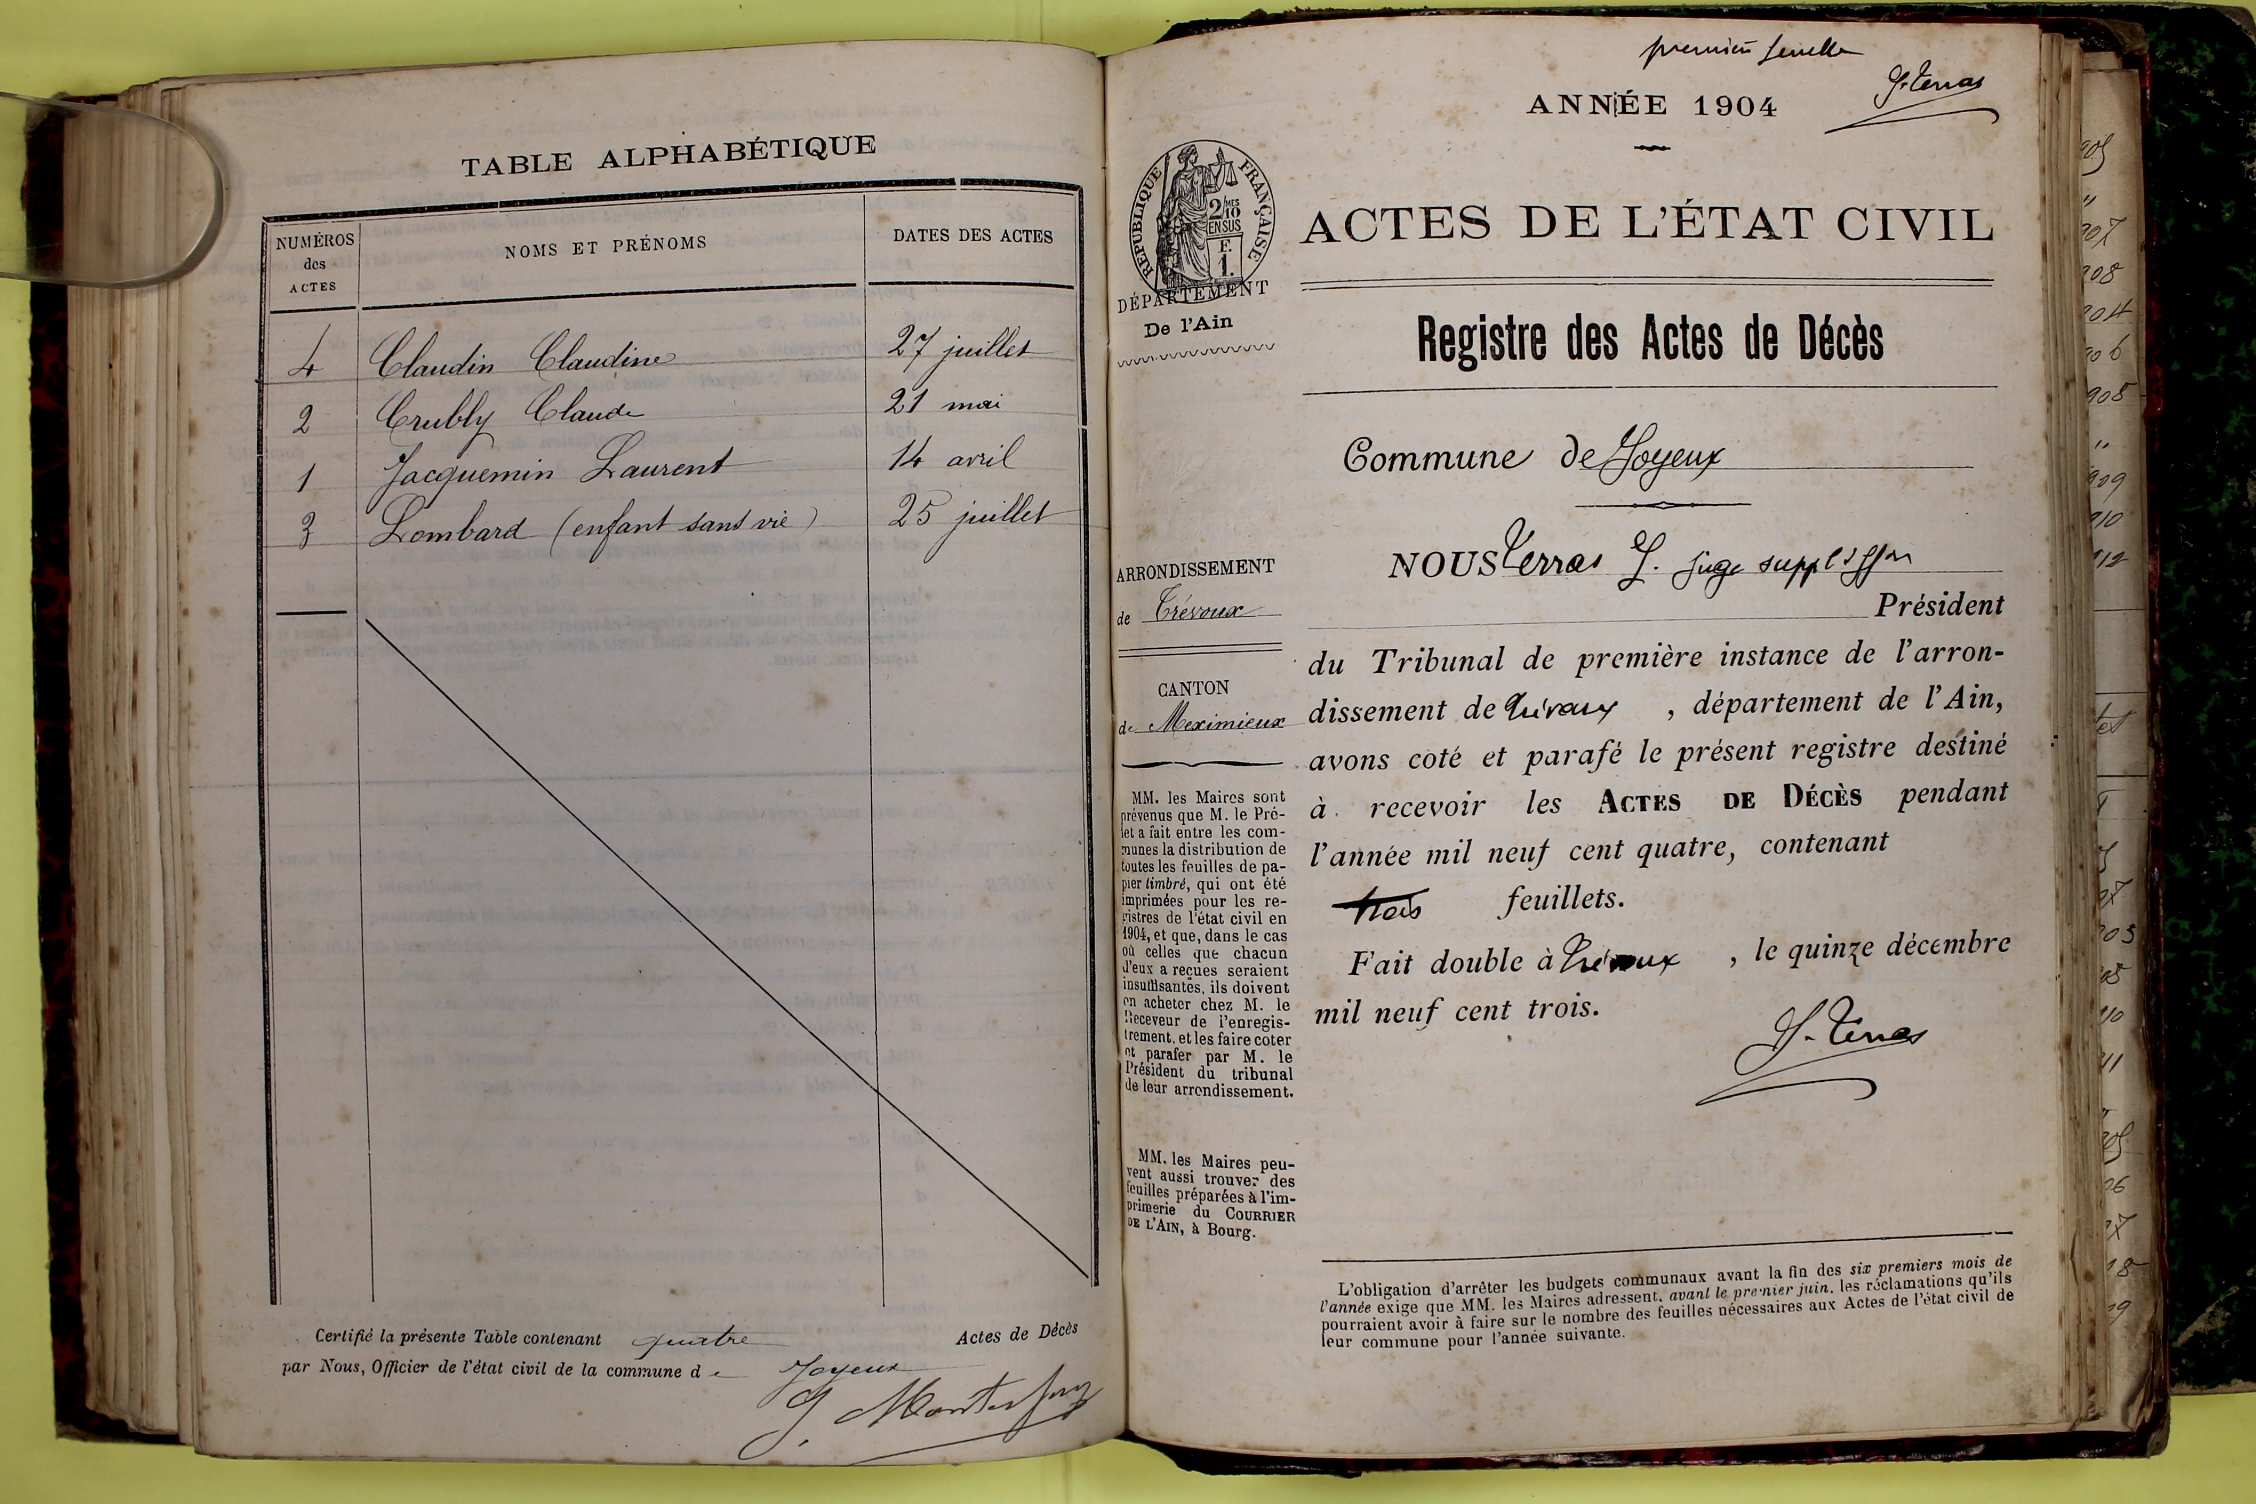 TABLE ALPHABÉTIQUE
NUMÉROS des ACTES
NOMS ET PRÉNOMS
DATES DES ACTES
4 Claudin Claudine 27 juillet
2 Crubly Claude 21 mai
1 Jacquemin Laurent 14 avril
3 Lombard (enfant sans vie) 25 juillet
Certifié la présente Table contenant quatre Actes de Décès
par Nous, Officier de l'état civil de la commune de Joyeux
ANNÉE 1904
ACTES DE L'ÉTAT CIVIL
RÉPUBLIQUE FRANÇAISE
2/10 MES
EN SUS
F.
1.
DÉPARTEMENT
De l'Ain
Registre des Actes de Décès
Commune de Joyeux
ARRONDISSEMENT
de Trévoux
CANTON
de Meximieux
MM. les Maires sont
prévenus que M. le Pré-
fet a fait entre les com-
munes la distribution de
toutes les feuilles de pa-
pier timbré, qui ont été
imprimées pour les re-
gistres de l'état civil en
1904, et que, dans le cas
où celles que chacun
d'eux a reçues seraient
insuffisantes, ils doivent
en acheter chez M. le
Receveur de l'enregis-
trement, et les faire coter
et parafer par M. le
Président du tribunal
de leur arrondissement.
MM. les Maires peu-
vent aussi trouver des
feuilles préparées à l'im-
primerie du COURRIER
DE L'AIN, à Bourg.
NOUS Terras J. juge suppl
Président
du Tribunal de première instance de l'arron-
dissement de Trévoux, département de l'Ain,
avons coté et parafé le présent registre destiné
à recevoir les ACTES DE DÉCÈS pendant
l'année mil neuf cent quatre, contenant
trois feuillets.
Fait double à Trévoux, le quinze décembre
mil neuf cent trois.
L'obligation d'arrêter les budgets communaux avant la fin des six premiers mois de
l'année exige que MM. les Maires adressent, avant le premier juin, les réclamations qu'ils
pourraient avoir à faire sur le nombre des feuilles nécessaires aux Actes de l'état civil de
leur commune pour l'année suivante.